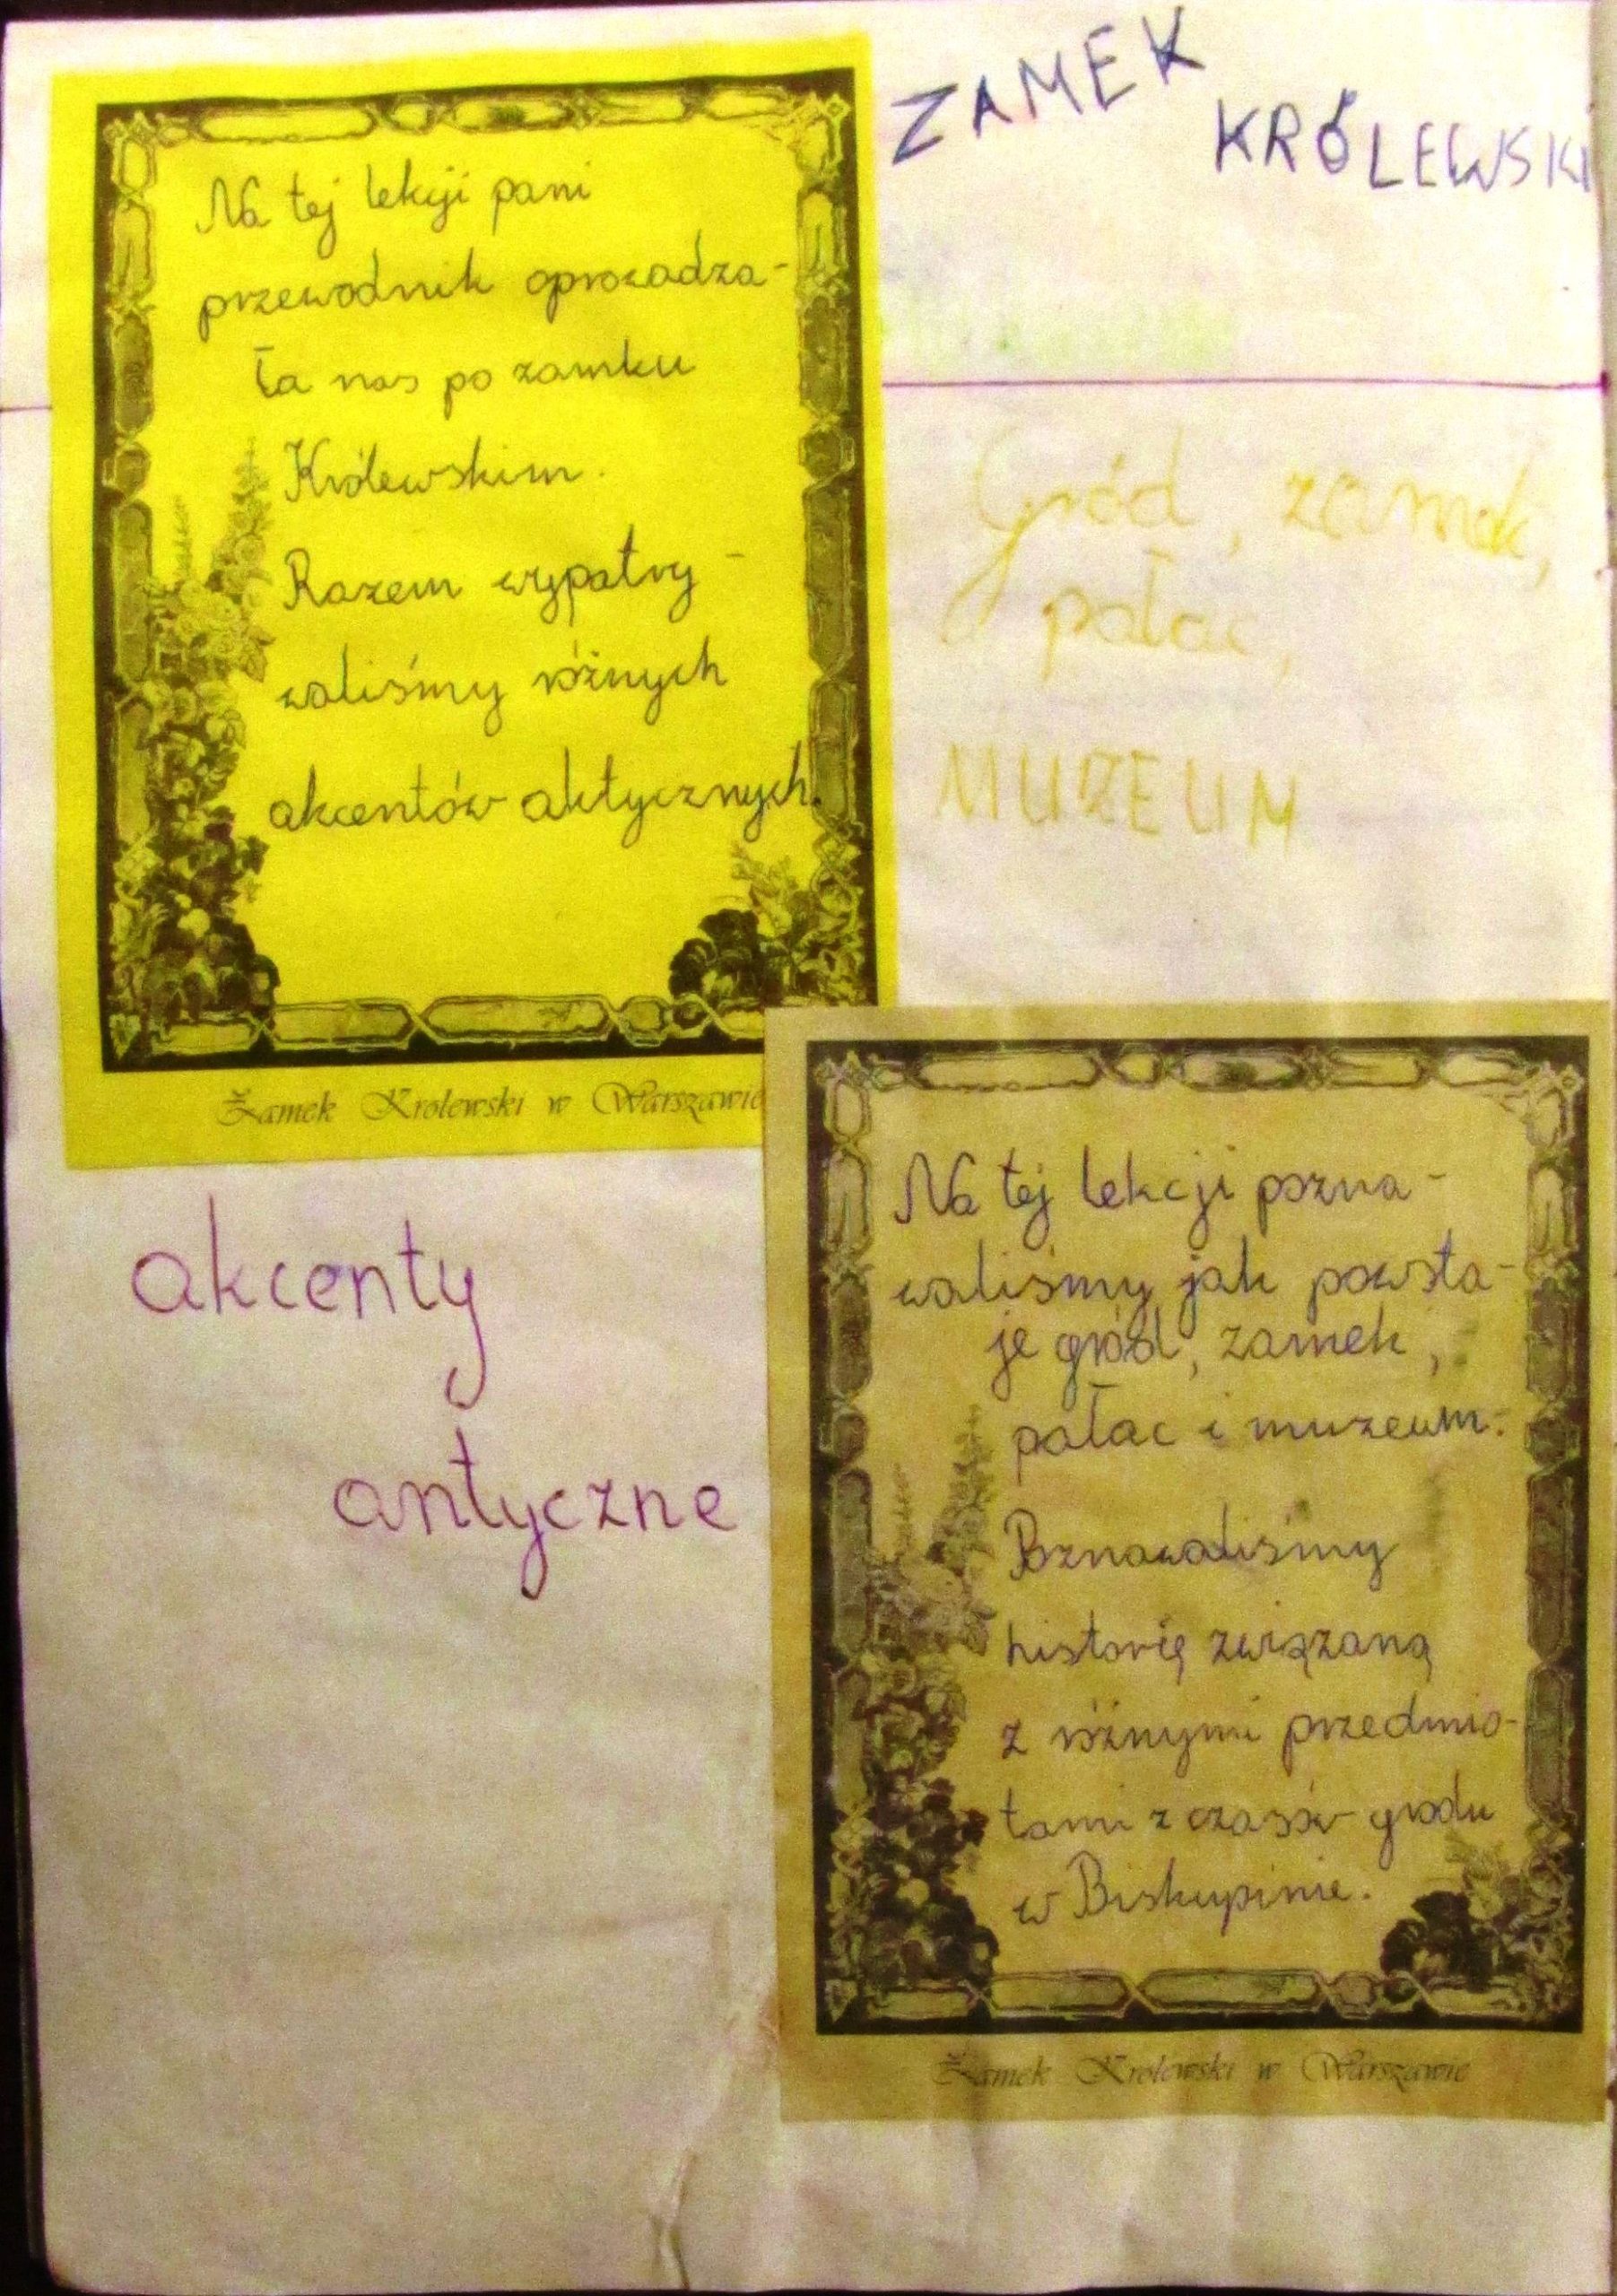 ZAMEK
KRÓLEWSKI
Na tej lekcji pani
przewodnik oprowadza-
ła nas po zamku
Królewskim.
Razem wypatry-
waliśmy różnych
akcentów aktycznych.
Zamek Krolewski w Warszawie
Gród, zamek,
pałac,
MUZEUM
akcenty
antyczne
Na tej lekcji pozna-
waliśmy jak powsta-
je gród, zamek,
pałac i muzeum.
Poznawaliśmy
historię związaną
z różnymi przedmio-
tami z czasów grodu
w Biskupinie.
Zamek Krolewski w Warszawie